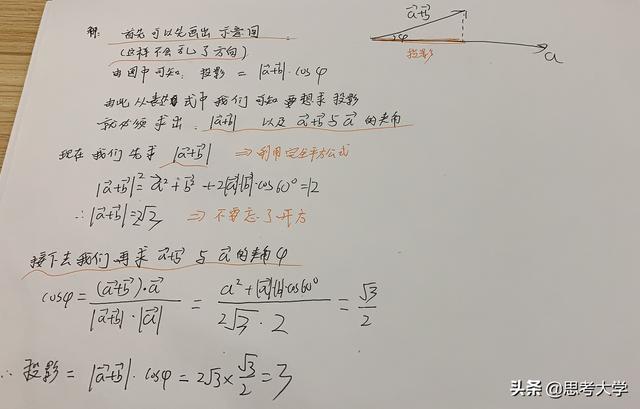 解: 首先可以先画出示意图
(这样不会乱了方向)
由图中可知: 投影 = |a⃗+b⃗|·cosφ
由此从表达式中我们可知要想求投影
就必须求出 |a⃗+b⃗| 以及 a⃗+b⃗ 与 a⃗ 的夹角
现在我们先求 |a⃗+b⃗| ⇒ 利用完全平方公式
|a⃗+b⃗|² = a⃗² + b⃗² + 2|a⃗||b⃗|·cos60° = 12
∴ |a⃗+b⃗| = 2√3 ⇒ 不要忘了开方
接下去我们再求 a⃗+b⃗ 与 a⃗ 的夹角 φ
cosφ = (a⃗+b⃗)·a⃗ / |a⃗+b⃗|·|a⃗| = a² + |a⃗||b⃗|·cos60° / 2√3·2 = √3/2
∴ 投影 = |a⃗+b⃗|·cosφ = 2√3 × √3/2 = 3
a⃗+b⃗
φ
投影
a
头条 @思考大学